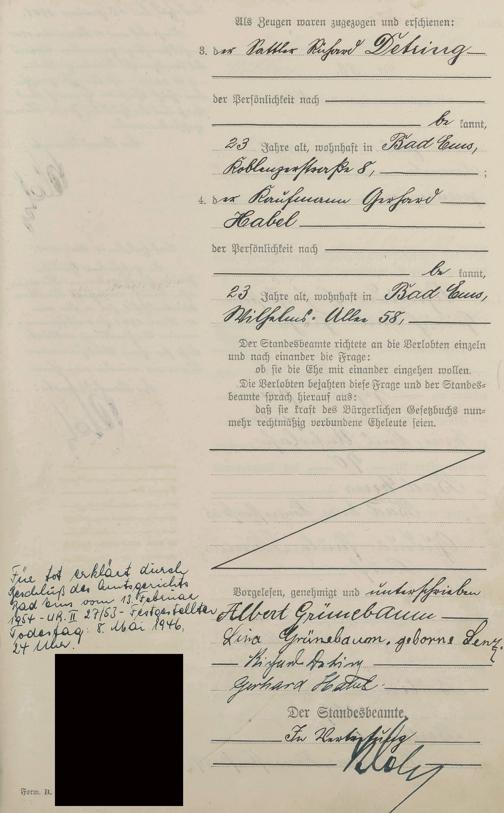 Als Zeugen waren zugezogen und erschienen:
3. der Sattler Richard Detring
der Persönlichkeit nach
be kannt,
23 Jahre alt, wohnhaft in Bad Ems,
Koblenzerstraße 8, ;
4. der Kaufmann Gerhard
Habel
der Persönlichkeit nach
be kannt,
23 Jahre alt, wohnhaft in Bad Ems,
Wilhelms-Allee 58,
Der Standesbeamte richtete an die Verlobten einzeln
und nach einander die Frage:
ob sie die Ehe mit einander eingehen wollen.
Die Verlobten bejahten diese Frage und der Standes=
beamte sprach hierauf aus:
daß sie kraft des Bürgerlichen Gesetzbuchs nun=
mehr rechtmäßig verbundene Eheleute seien.
Für tot erklärt durch
Beschluß des Amtsgerichts
Bad Ems vom 13. Februar
1954 - UR. II 27/53 - Festgestellter
Todestag: 8. Mai 1946,
24 Uhr.
Vorgelesen, genehmigt und unterschrieben
Albert Grünebaum
Lina Grünebaum, geborne Lenz.
Richard Detring
Gerhard Habel
Der Standesbeamte.
In Vertretung
Form. B.